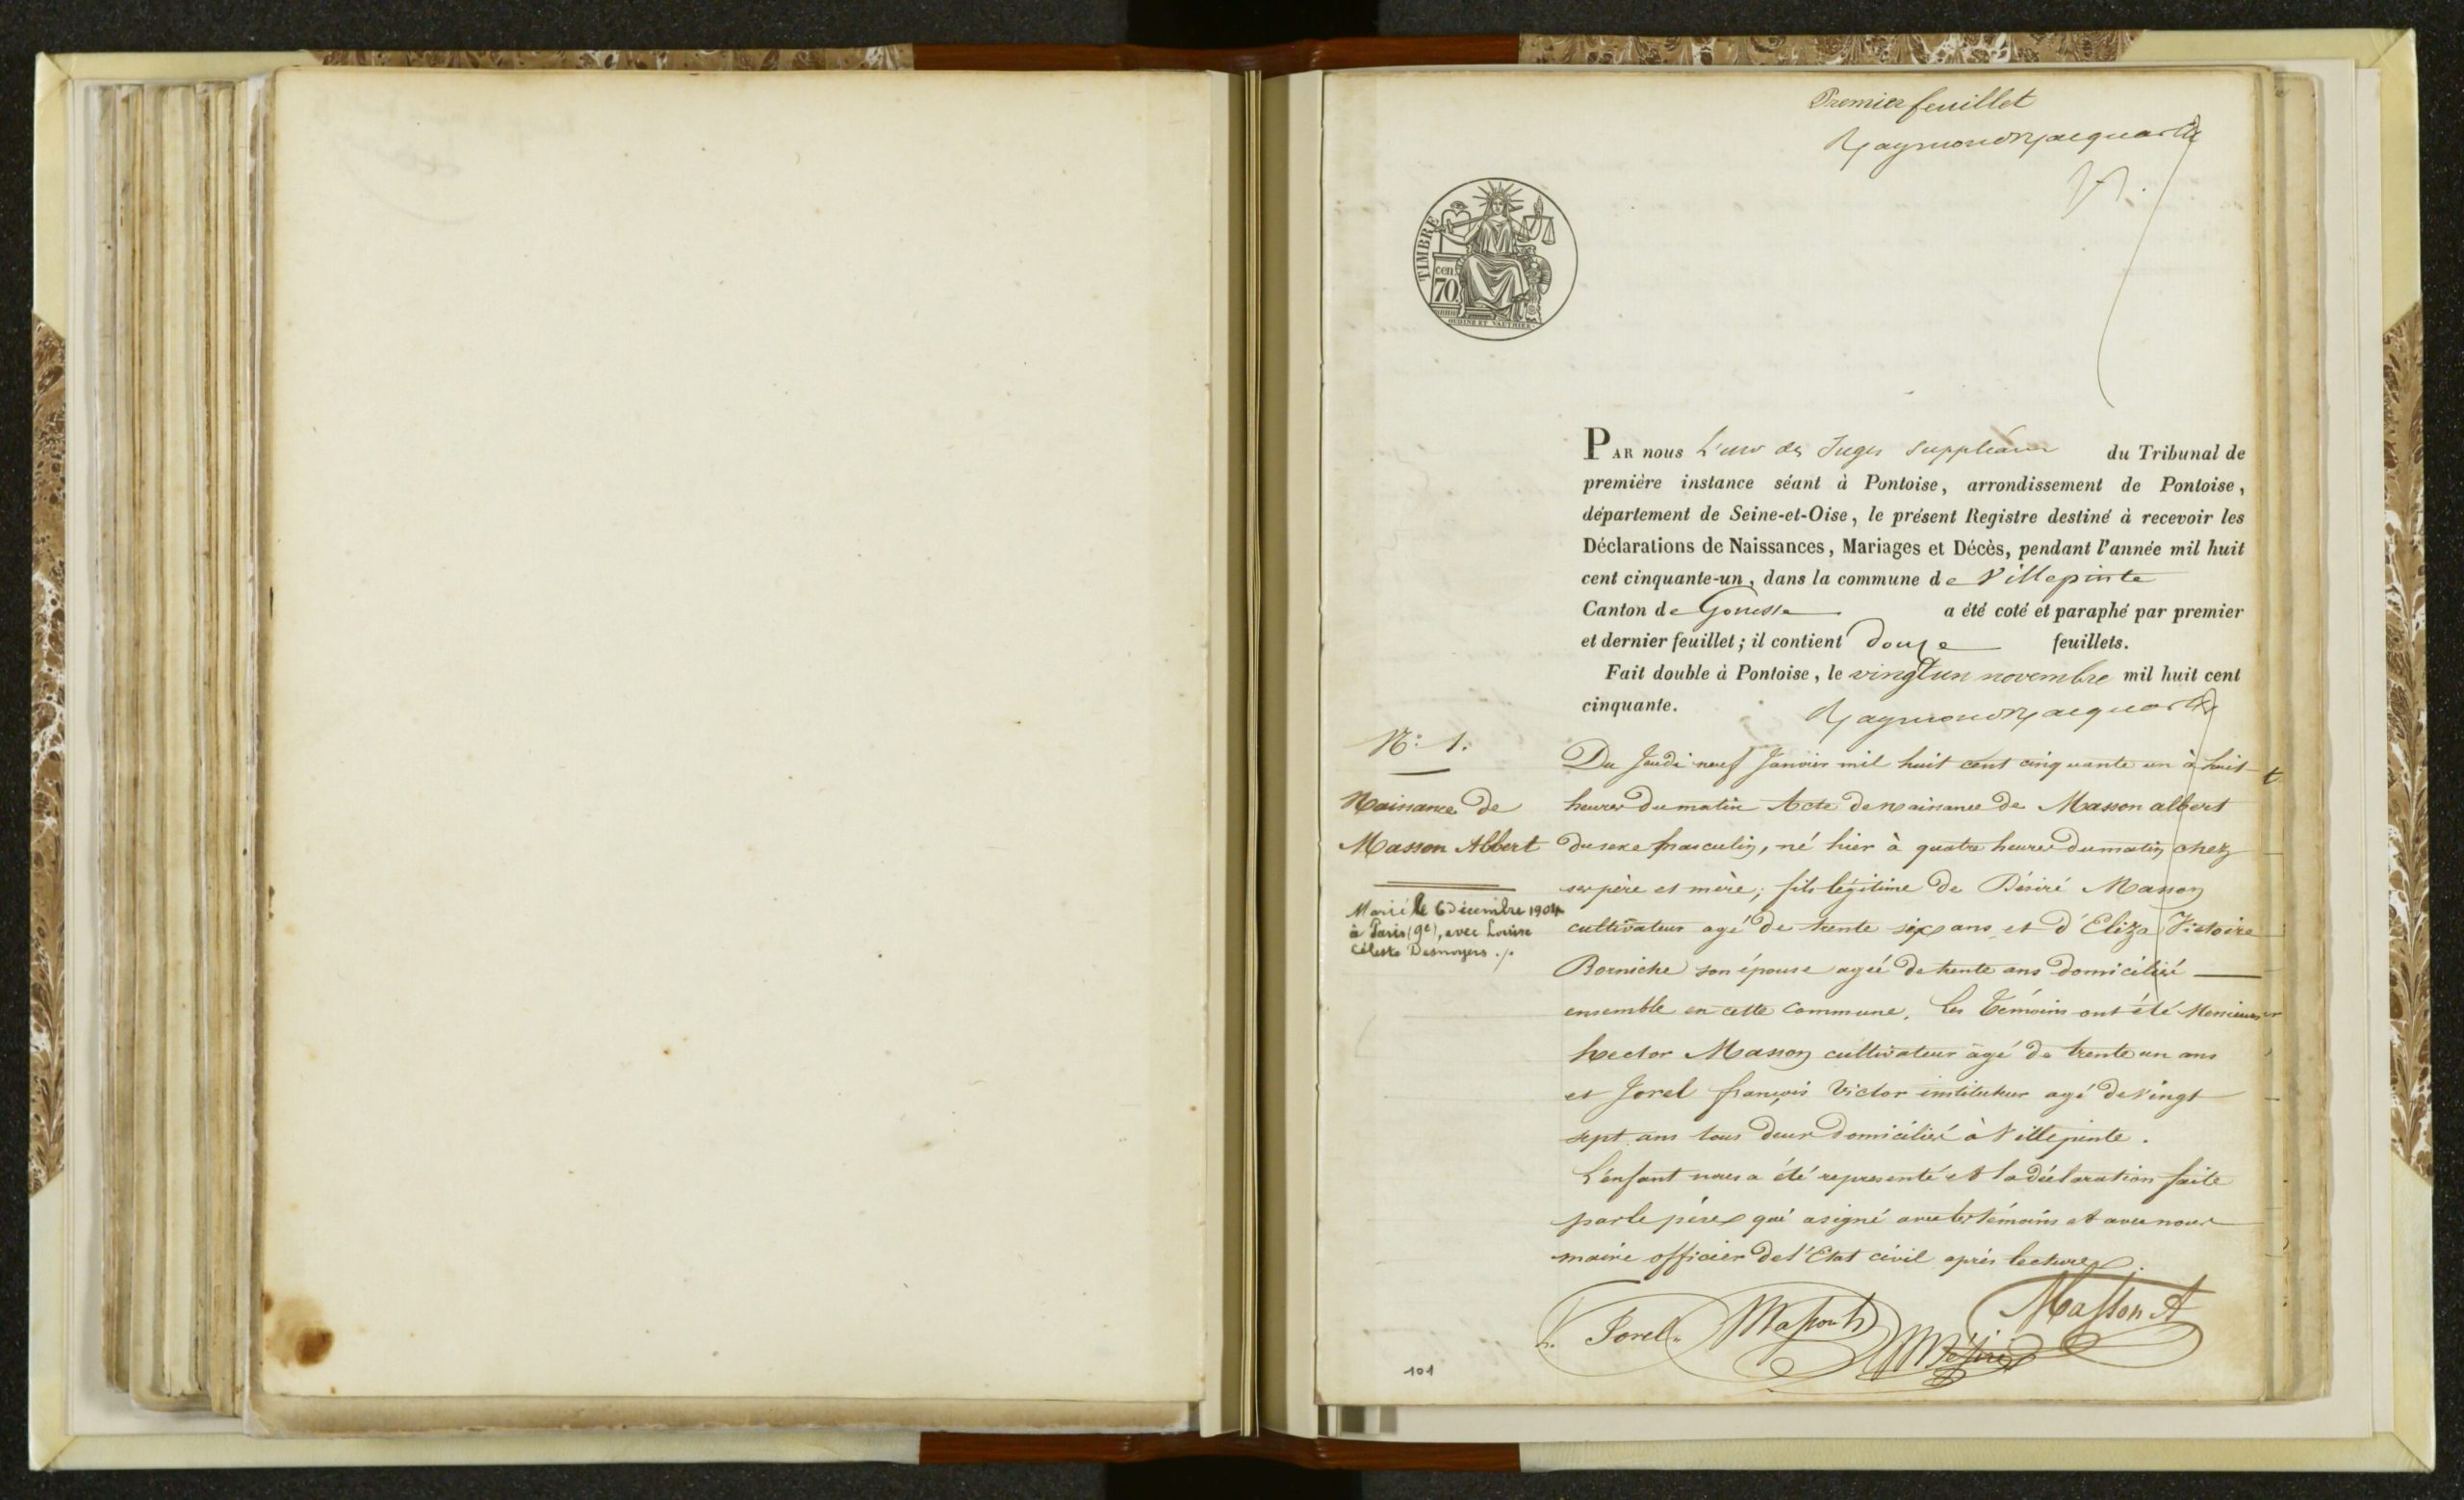 Premier feuillet
TIMBRE
cen
70
OUDINE ET VAUTHIER
PAR nous L'un des Juges Suppléans du Tribunal de
première instance séant à Pontoise, arrondissement de Pontoise,
département de Seine-et-Oise, le présent Registre destiné à recevoir les
Déclarations de Naissances, Mariages et Décès, pendant l'année mil huit
cent cinquante-un, dans la commune de Villepinte
Canton de Gonesse a été coté et paraphé par premier
et dernier feuillet; il contient douze feuillets.
Fait double à Pontoise, le vingt un novembre mil huit cent
cinquante.
N: 1.
Naissance de
Masson Albert
Marié le 6 Décembre 1904
à Paris (9e), avec Louise
Céleste Desnoyers ./.
Du Jeudi neuf Janvier mil huit cent cinquante un à huit
heures du matin Acte de naissance de Masson albert
du sexe masculin, né hier à quatre heures du matin chez
ses père et mère; fils légitime de Désiré Masson
cultivateur agé de trente six ans et d'Eliza Victoire
Borniche son épouse agée de trente ans domicilié
ensemble en cette commune. Les témoins ont été Messieurs
hector Masson cultivateur âgé de trente un ans
et Jorel françois Victor instituteur agé de vingt
sept ans tous deux domiciliés à Villepinte.
L'enfant nous a été representé et la déclaration faite
par le père qui a signé avec les témoins et avec nous
maire officier de l'Etat civil après lecture.
Jorel Masson h Masson A
M Désiré
101